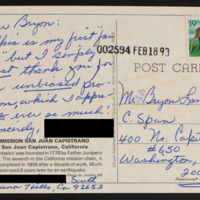 Bryon:
This is my first "fan
" but I simply
thank you for
unbiased pro-
which I appre-
ever so much!
Sincerely,
MISSION SAN JUAN CAPISTRANO
San Juan Capistrano, California
Mission was founded in 1776 by Father Junipero
The seventh in the California mission chain, it
completed in 1806 after a decade of work. Much
destroyed 6 years later by an earthquake.
Hills, Ca 92653
002594 FEB 18 93
POST CAR
Mr. Bryon Lam
C Span
400 No. Capi
#650
Washington,
200